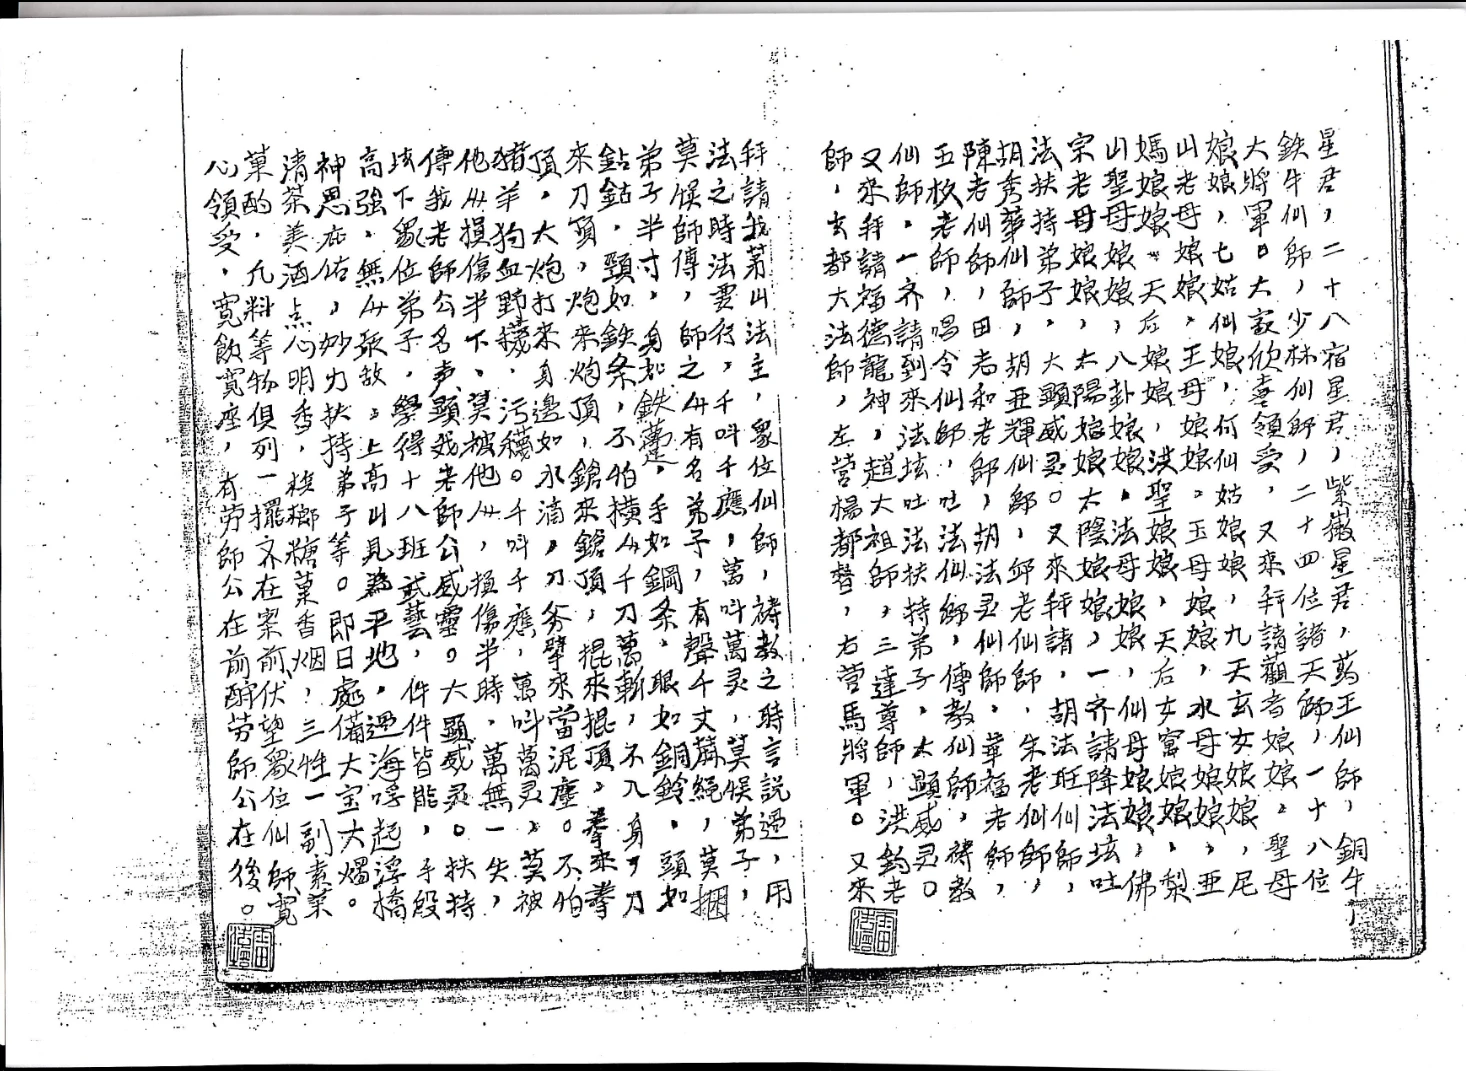 星君，二十八宿星君，紫薇星君，葯王仙師，銅牛
鉄牛仙師，少林仙師，二十四位諸天師，一十八位
大將軍。大家欣喜領受，又來拜請觀音娘娘。聖母
娘娘，七姑仙娘，何仙姑娘娘，九天玄女娘娘，尼
山老母娘娘，王母娘娘。玉母娘娘，水母娘娘，亞
媽娘娘。天后娘娘，洪聖娘娘，天后女宮娘娘，梨
山聖母娘娘，八卦娘娘。法母娘娘，仙母娘娘，佛
宗老母娘娘，太陽娘娘太陰娘娘，一齐請降法坛吐
法扶持弟子，大顯威灵。又來拜請，胡法旺仙師，
胡秀華仙師，胡亞輝仙師，邱老仙師，朱老仙師，
陳老仙師，田老和老師，胡法灵仙師。華福老師，
五枚老師，唱令仙師，吐法仙師，傳教仙師，禱教
仙師。一齐請到來法坛吐法扶持弟子，大顯威灵。
又來拜請福德龍神，趙大祖師，三達尊師，洪鈞老
師，玄都大法師，左营楊都督，右营馬將軍。又來
拜請我茅山法主，眾位仙師，禱教之時言説過，用
法之時法要行，千叫千應，萬叫萬灵，莫悞弟子，
莫悞師傳，師之人有名弟子，有聲千丈麻繩，莫捆
弟子半寸，身如鉄　，手如鋼条。眼如銅鈴。頭如
鉆鉆，頸如鉄条，不怕横人千刀萬斬，不入身，刀
來刀頂，炮來炮頂，鎗來鎗頂，掍來掍頂，拳來拳
頂，大炮打來身邊如水滴，刀斧擘來當泥塵。不怕
猪羊狗血野穢，污穢。千叫千應，萬叫萬灵，莫被
他人損傷半下，莫被他人，損傷半時，萬無一失，
傳我老師公名声，顯我老師公威靈。大顯威灵。扶持
坛下眾位弟子，學得十八班武藝，件件皆能，手段
高強，無人敢敌。上高山見為平地，過海呼起浮橋
神恩庇佑，妙力扶持弟子等。即日處備大宝大燭。
清茶美酒点心明香，梹榔糖菓香烟，三牲一副素菜
菓酌，凡料等物俱列一擺齐在案前，伏望眾位仙師，寬
心領受，寬飲寬座，有劳師公在前酧劳師公在後。